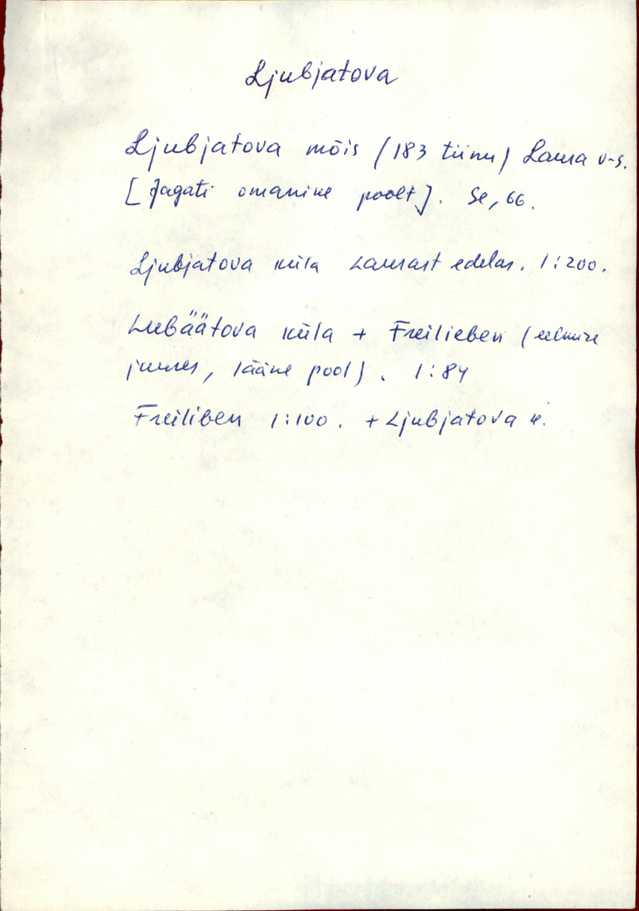 Ljubjatova
Ljubjatova mõis (183 tiinu) Laura v-s.
[Jagati omanike poolt]. Se, 66.
Ljubjatova küla Laurast edelas. 1:200.
Lubäätova küla + Freilieben (eelmise
juures, lääne pool). 1:84
Freiliben 1:100. + Ljubjatova k.